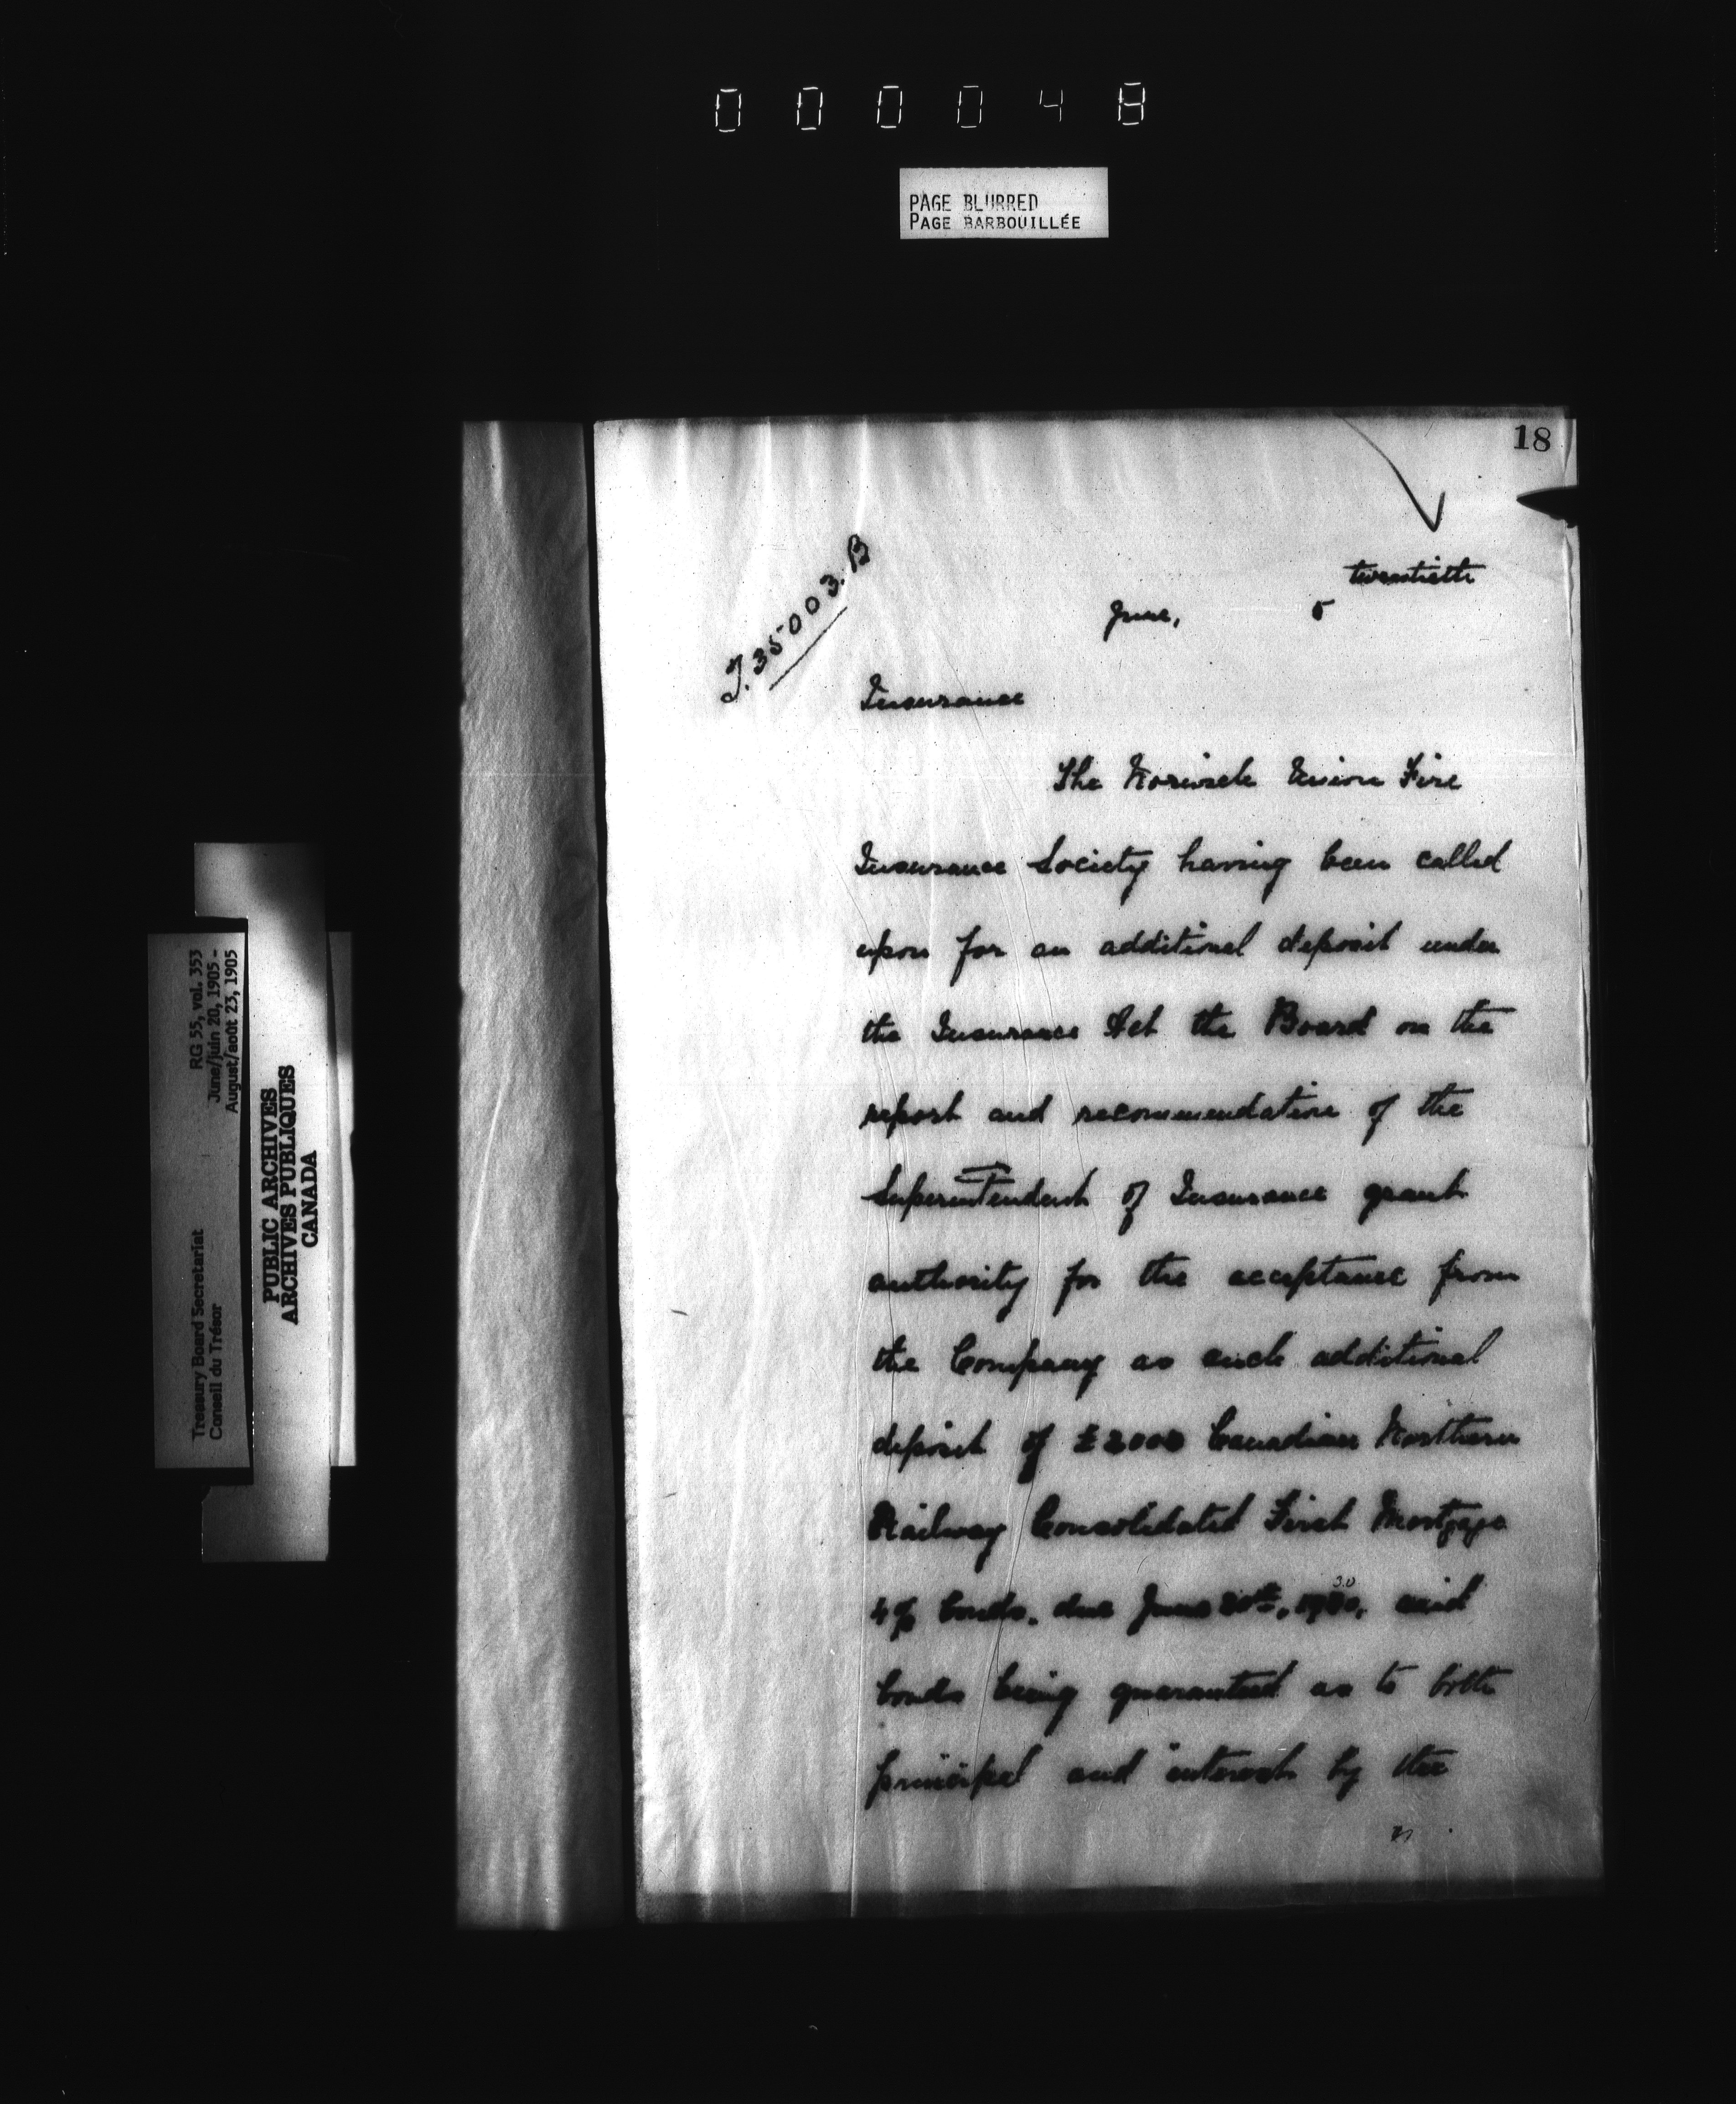 000048
PAGE BLURRED
PAGE BARBOUILLÉE
18
J.35003.B
twentieth
June, 5
Insurance
The Norwich Union Fire
Insurance Society having been called
upon for an additional deposit under
the Insurance Act the Board on the
report and recommendation of the
Superintendent of Insurance grant
authority for the acceptance from
the Company as such additional
deposit of £2000 Canadian Northern
Railway Consolidated First Mortgage
4% bonds, due June said
30
bonds being guaranteed as to both
principal and interest by the
RG 55, vol. 353
June/juin 20, 1905 -
August/août 23, 1905
Treasury Board Secretariat
Conseil du Trésor
PUBLIC ARCHIVES
ARCHIVES PUBLIQUES
CANADA